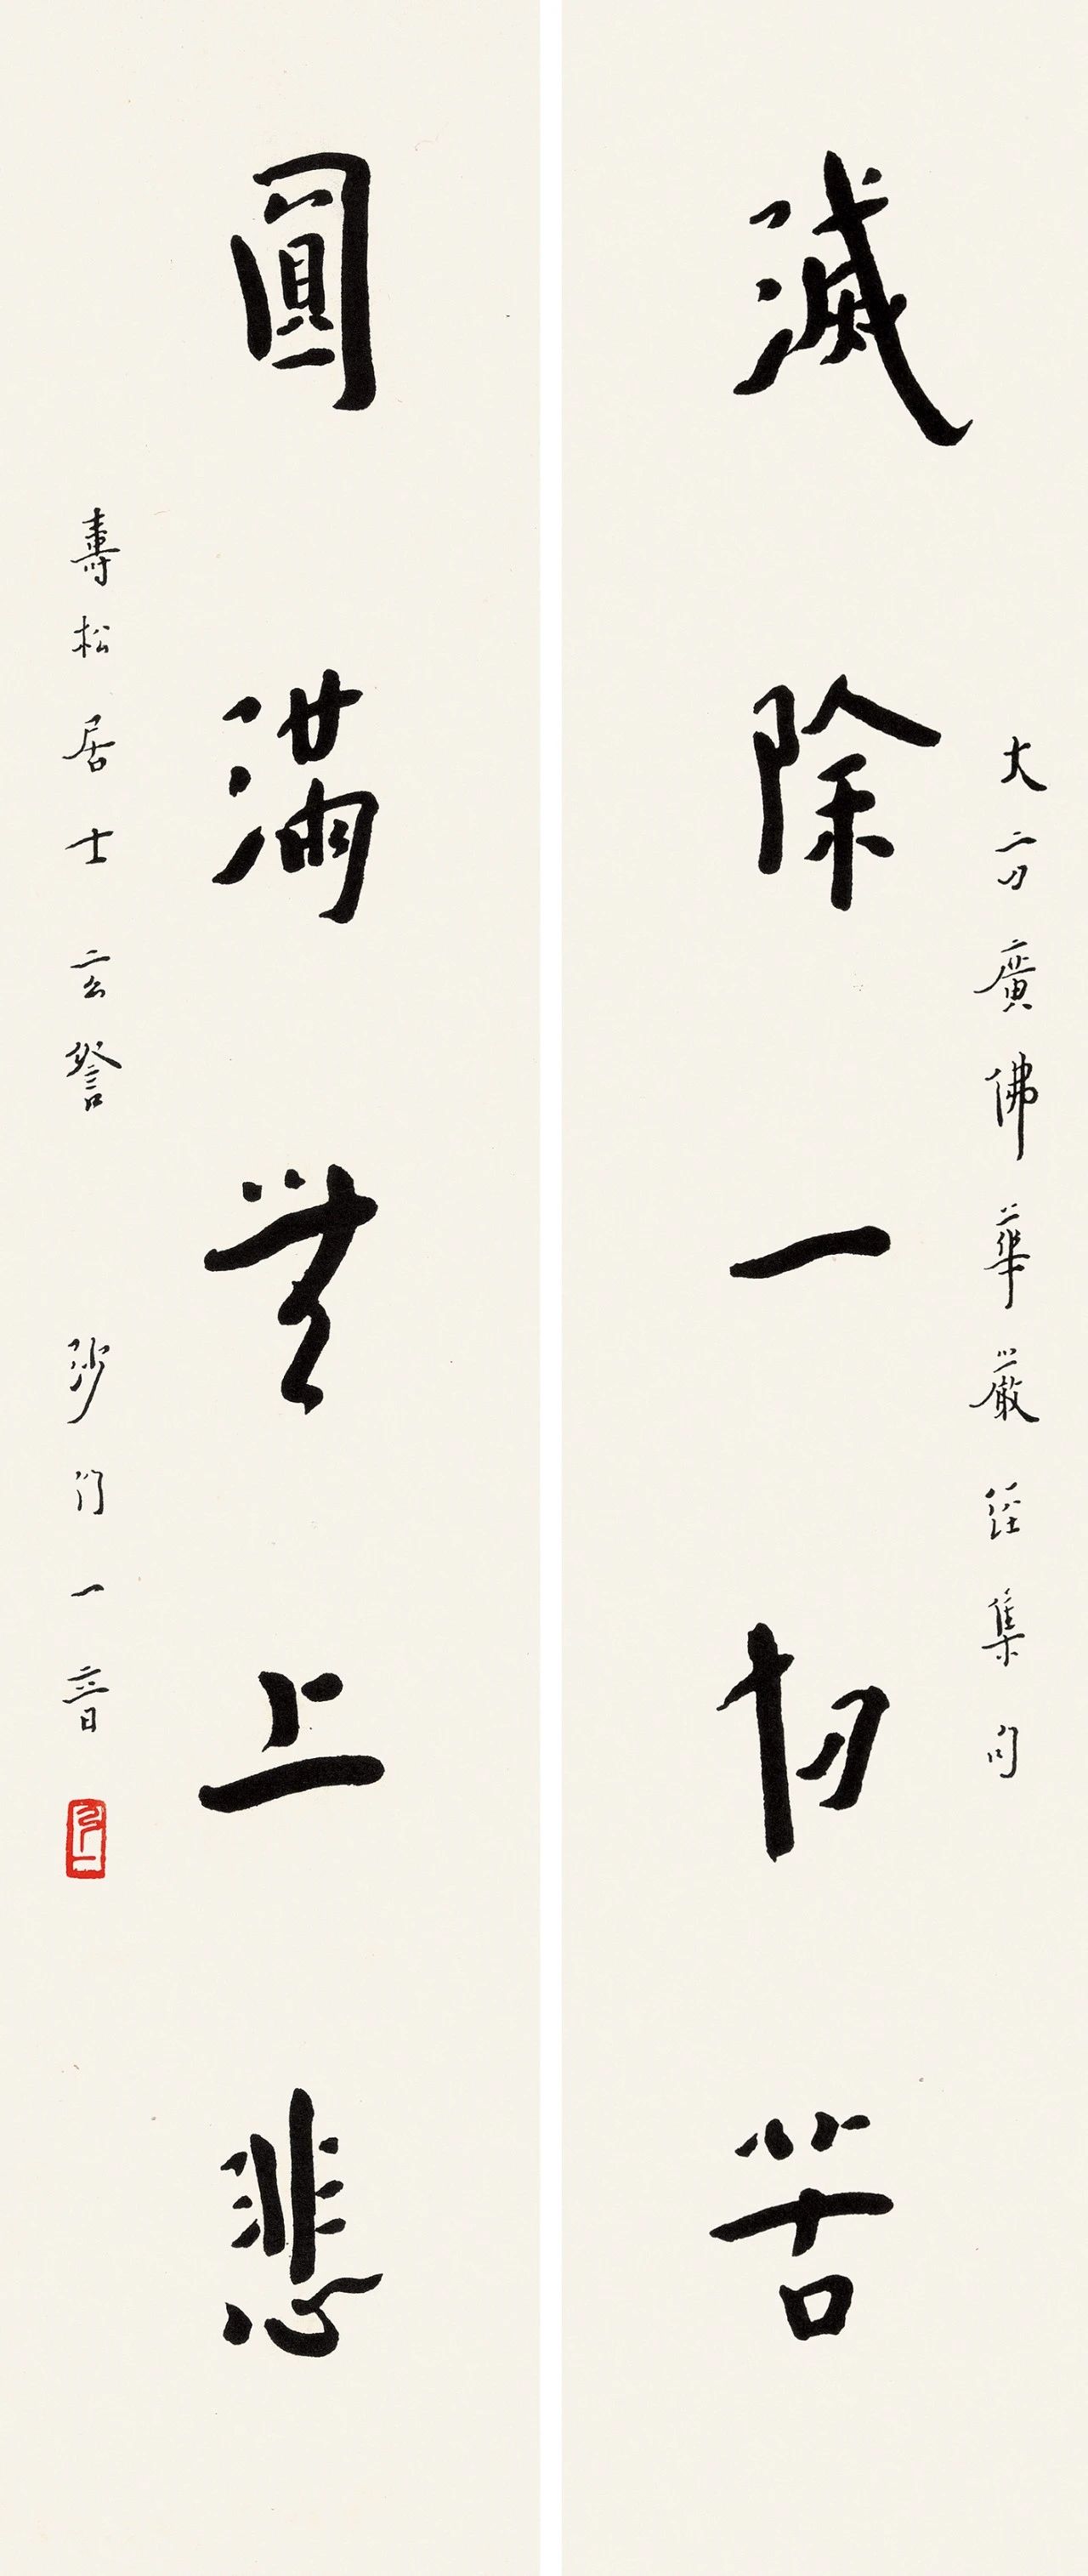 大方廣佛華嚴經集句
滅除一切苦
圓滿無上悲
壽松居士玄詧
沙門一音